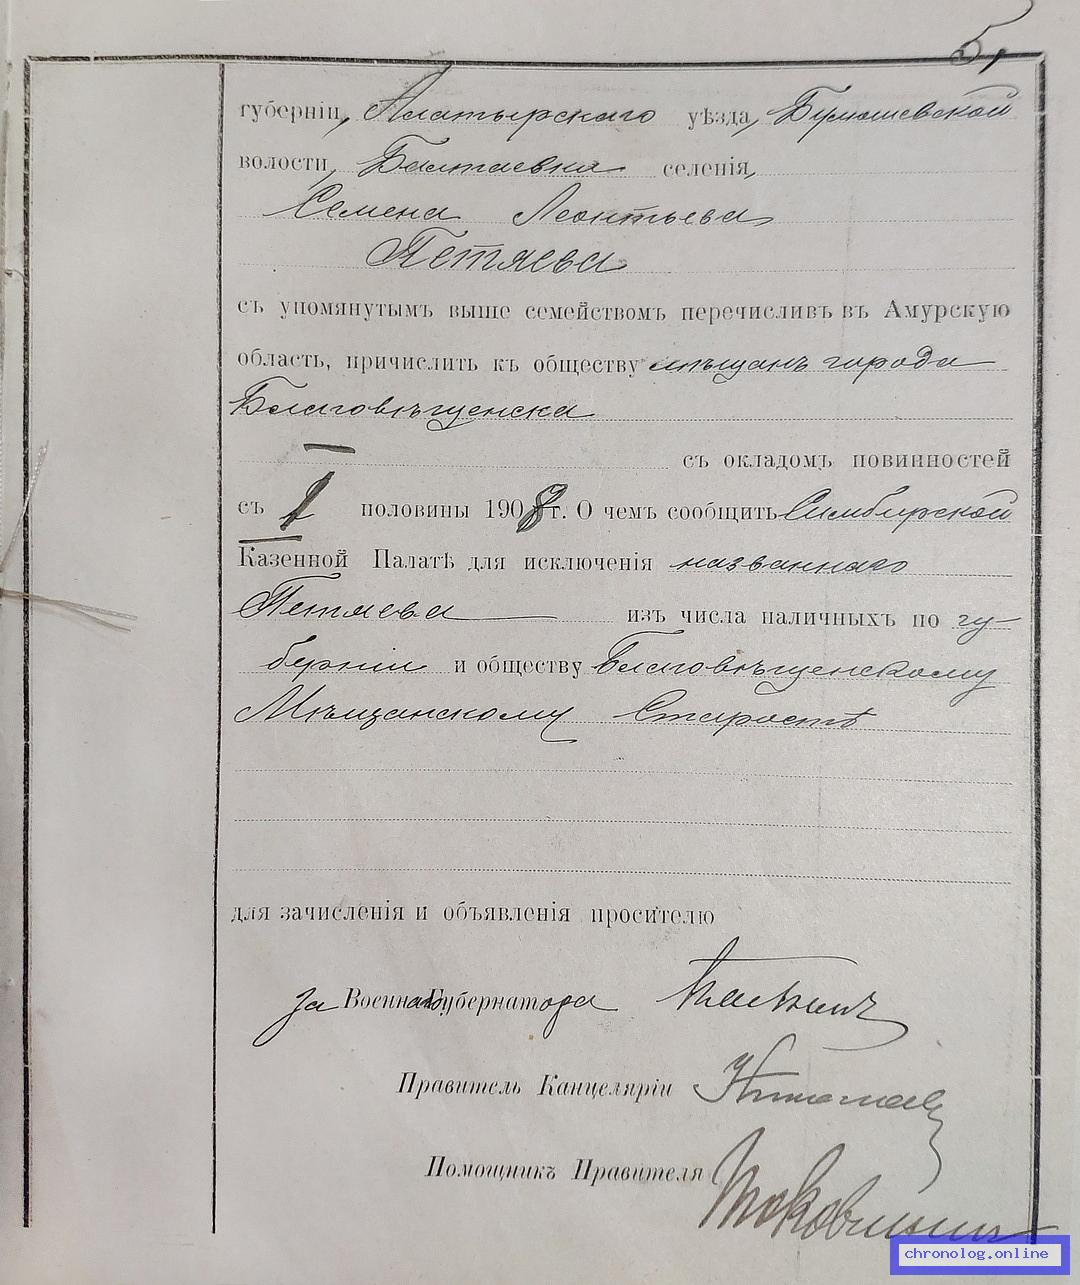 5,
губерніи, Алатырскаго уѣзда, 
волости, Балтаевка селенія,
Семена Леонтьева
Петяева
съ упомянутымъ выше семействомъ перечисливъ въ Амурскую
область, причислить къ обществу мѣщанъ города
Благовѣщенска
съ окладомъ повинностей
съ половины 1908 г. О чемъ сообщить Симбирской
Казенной Палатѣ для исключенія названнаго
Петяева изъ числа наличныхъ по гу-
берніи и обществу Благовѣщенскому
Мѣщанскому Старостѣ
для зачисленія и объявленія просителю
За Военнаго Губернатора
Правитель Канцеляріи
Помощникъ Правителя
chronolog.online